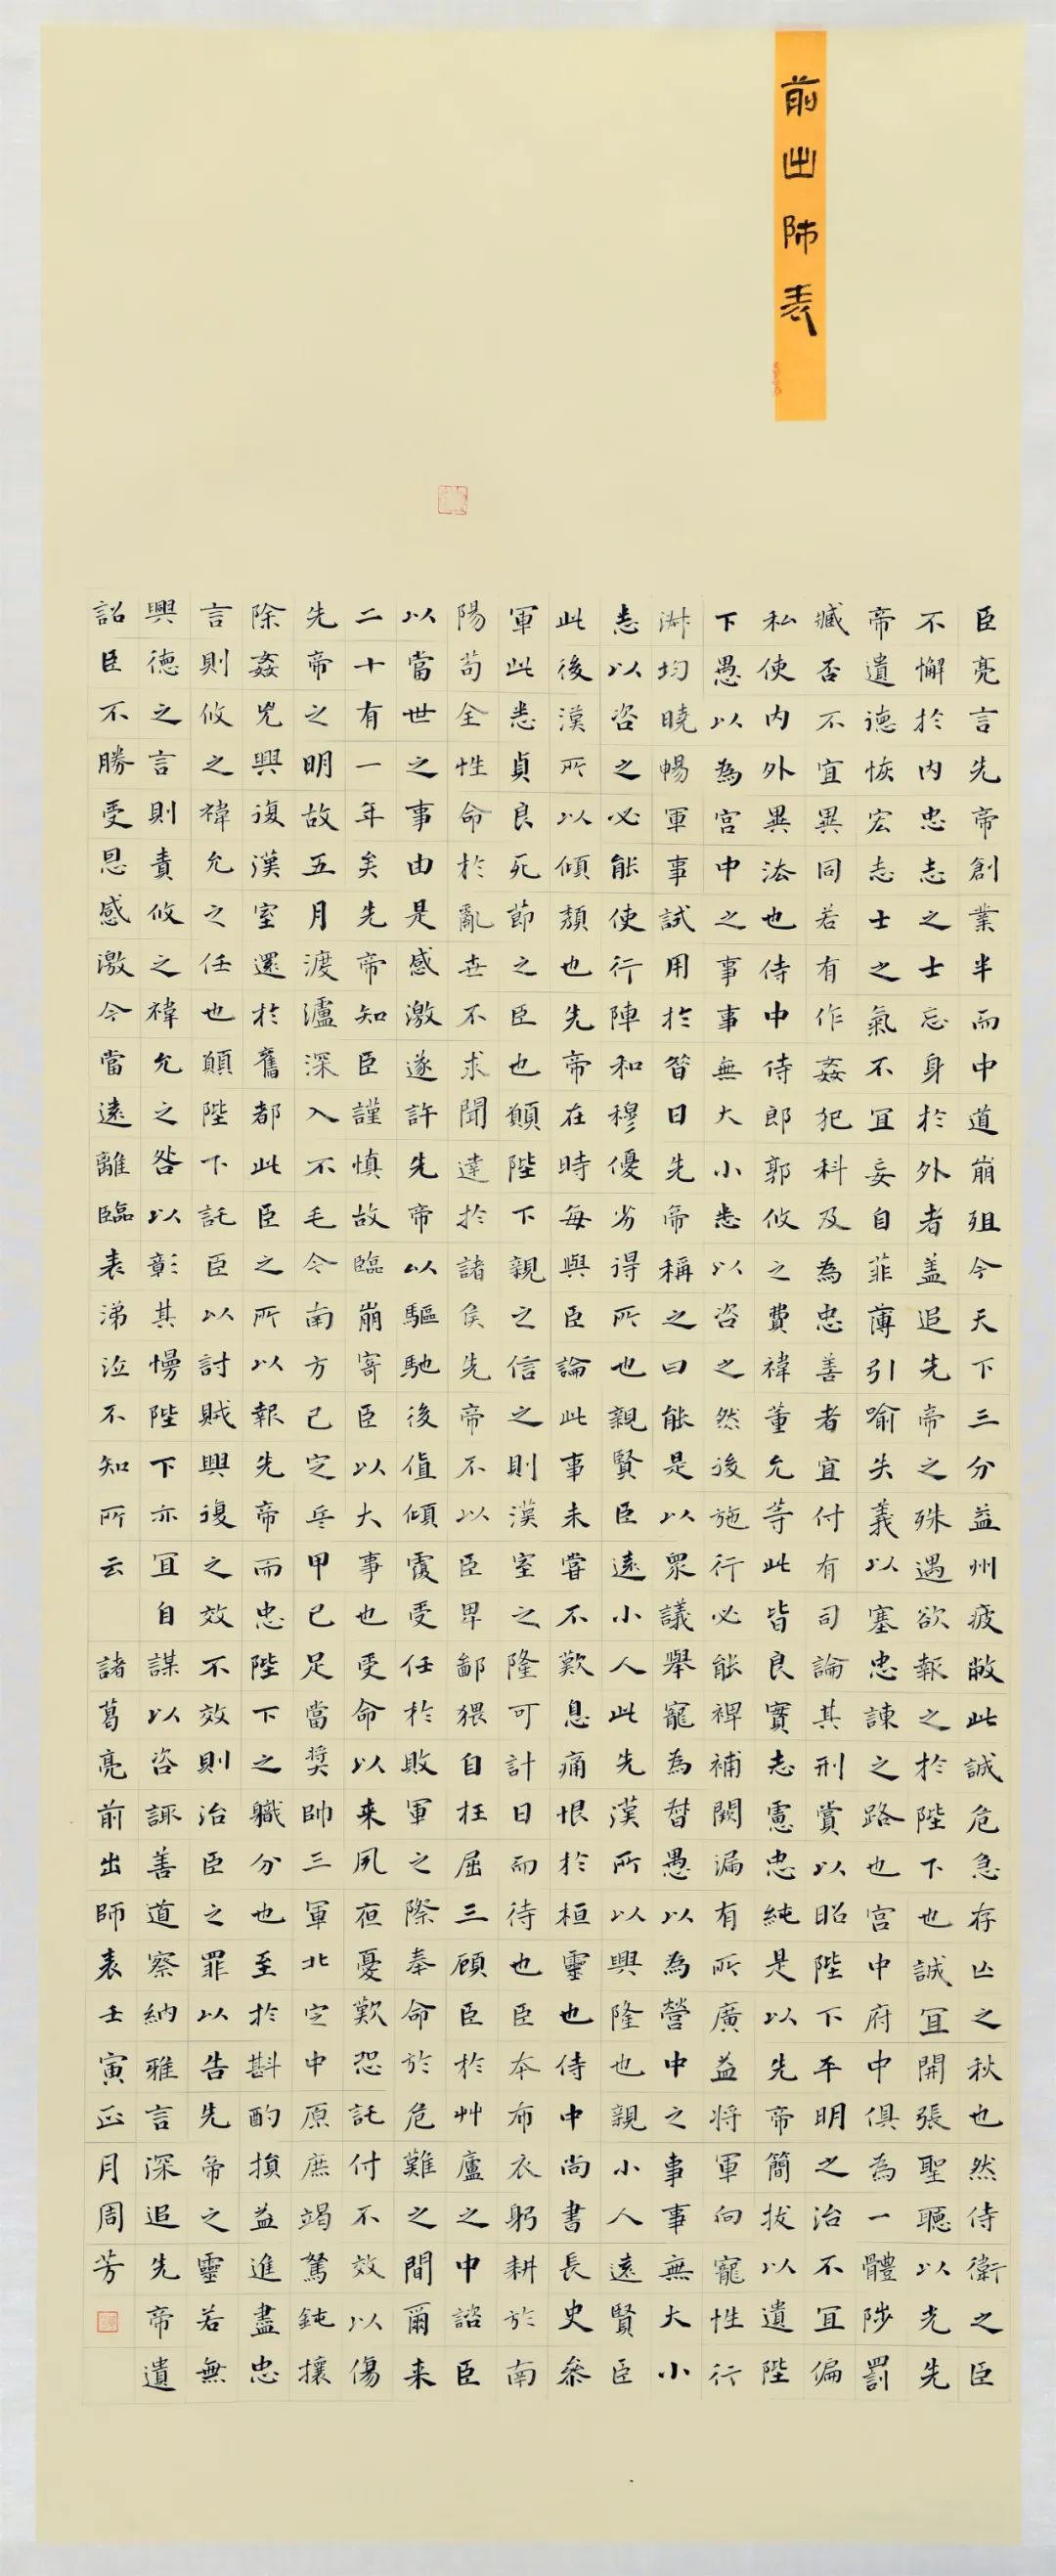 前出師表
臣亮言先帝創業半而中道崩殂今天下三分益州疲敝此誠危急存亡之秋也然侍衛之臣
不懈於內忠志之士忘身於外者蓋追先帝之殊遇欲報之於陛下也誠宜開張聖聽以光先
帝遺德恢宏志士之氣不宜妄自菲薄引喻失義以塞忠諫之路也宮中府中俱為一體陟罰
臧否不宜異同若有作姦犯科及為忠善者宜付有司論其刑賞以昭陛下平明之治不宜偏
私使內外異法也侍中侍郎郭攸之費禕董允等此皆良實志慮忠純是以先帝簡拔以遺陛
下愚以為宮中之事事無大小悉以咨之然後施行必能裨補闕漏有所廣益將軍向寵性行
淑均曉暢軍事試用於昔日先帝稱之曰能是以眾議舉寵為督愚以為營中之事事無大小
悉以咨之必能使行陣和穆優劣得所也親賢臣遠小人此先漢所以興隆也親小人遠賢臣
此後漢所以傾頹也先帝在時每與臣論此事未嘗不歎息痛恨於桓靈也侍中尚書長史參
軍此悉貞良死節之臣也願陛下親之信之則漢室之隆可計日而待也臣本布衣躬耕於南
陽苟全性命於亂世不求聞達於諸侯先帝不以臣卑鄙猥自枉屈三顧臣於艸廬之中諮臣
以當世之事由是感激遂許先帝以驅馳後值傾覆受任於敗軍之際奉命於危難之間爾來
二十有一年矣先帝知臣謹慎故臨崩寄臣以大事也受命以來夙夜憂歎恐託付不效以傷
先帝之明故五月渡瀘深入不毛今南方已定兵甲已足當獎帥三軍北定中原庶竭駑鈍攘
除姦兇興復漢室還於舊都此臣之所以報先帝而忠陛下之職分也至於斟酌損益進盡忠
言則攸之禕允之任也願陛下託臣以討賊興復之效不效則治臣之罪以告先帝之靈若無
興德之言則責攸之禕允之咎以彰其慢陛下亦宜自謀以咨諏善道察納雅言深追先帝遺
詔臣不勝受恩感激今當遠離臨表涕泣不知所云 諸葛亮前出師表壬寅正月周芳